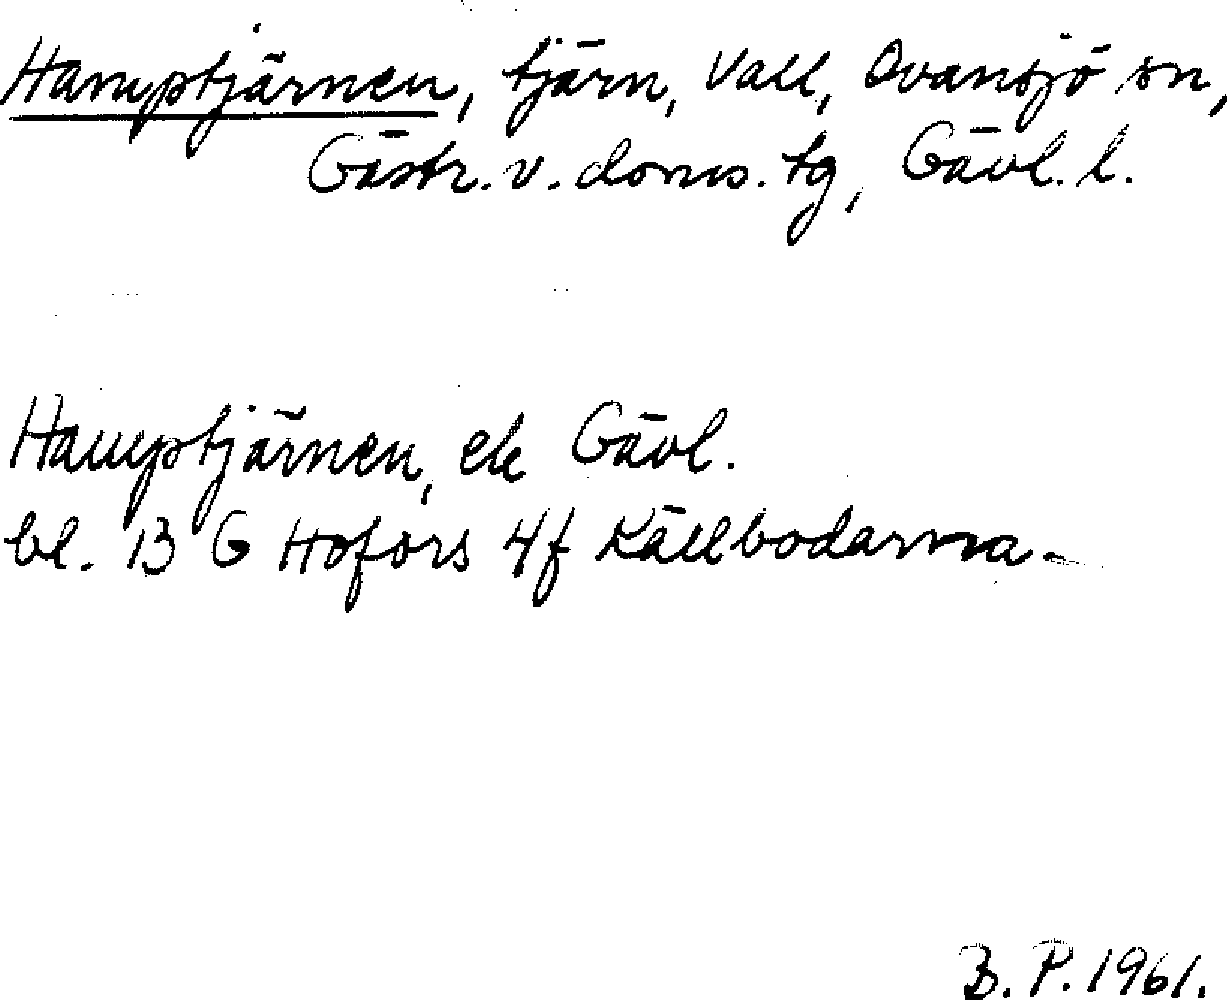 Hamptjärnen, tjärn, Vall, Ovansjö sn,
Gästr. v. doms. tg, Gävl. l.
Hamptjärnen, ek Gävl.
bl. 13 G Hofors 4f Källbodarna-
B. P. 1961.